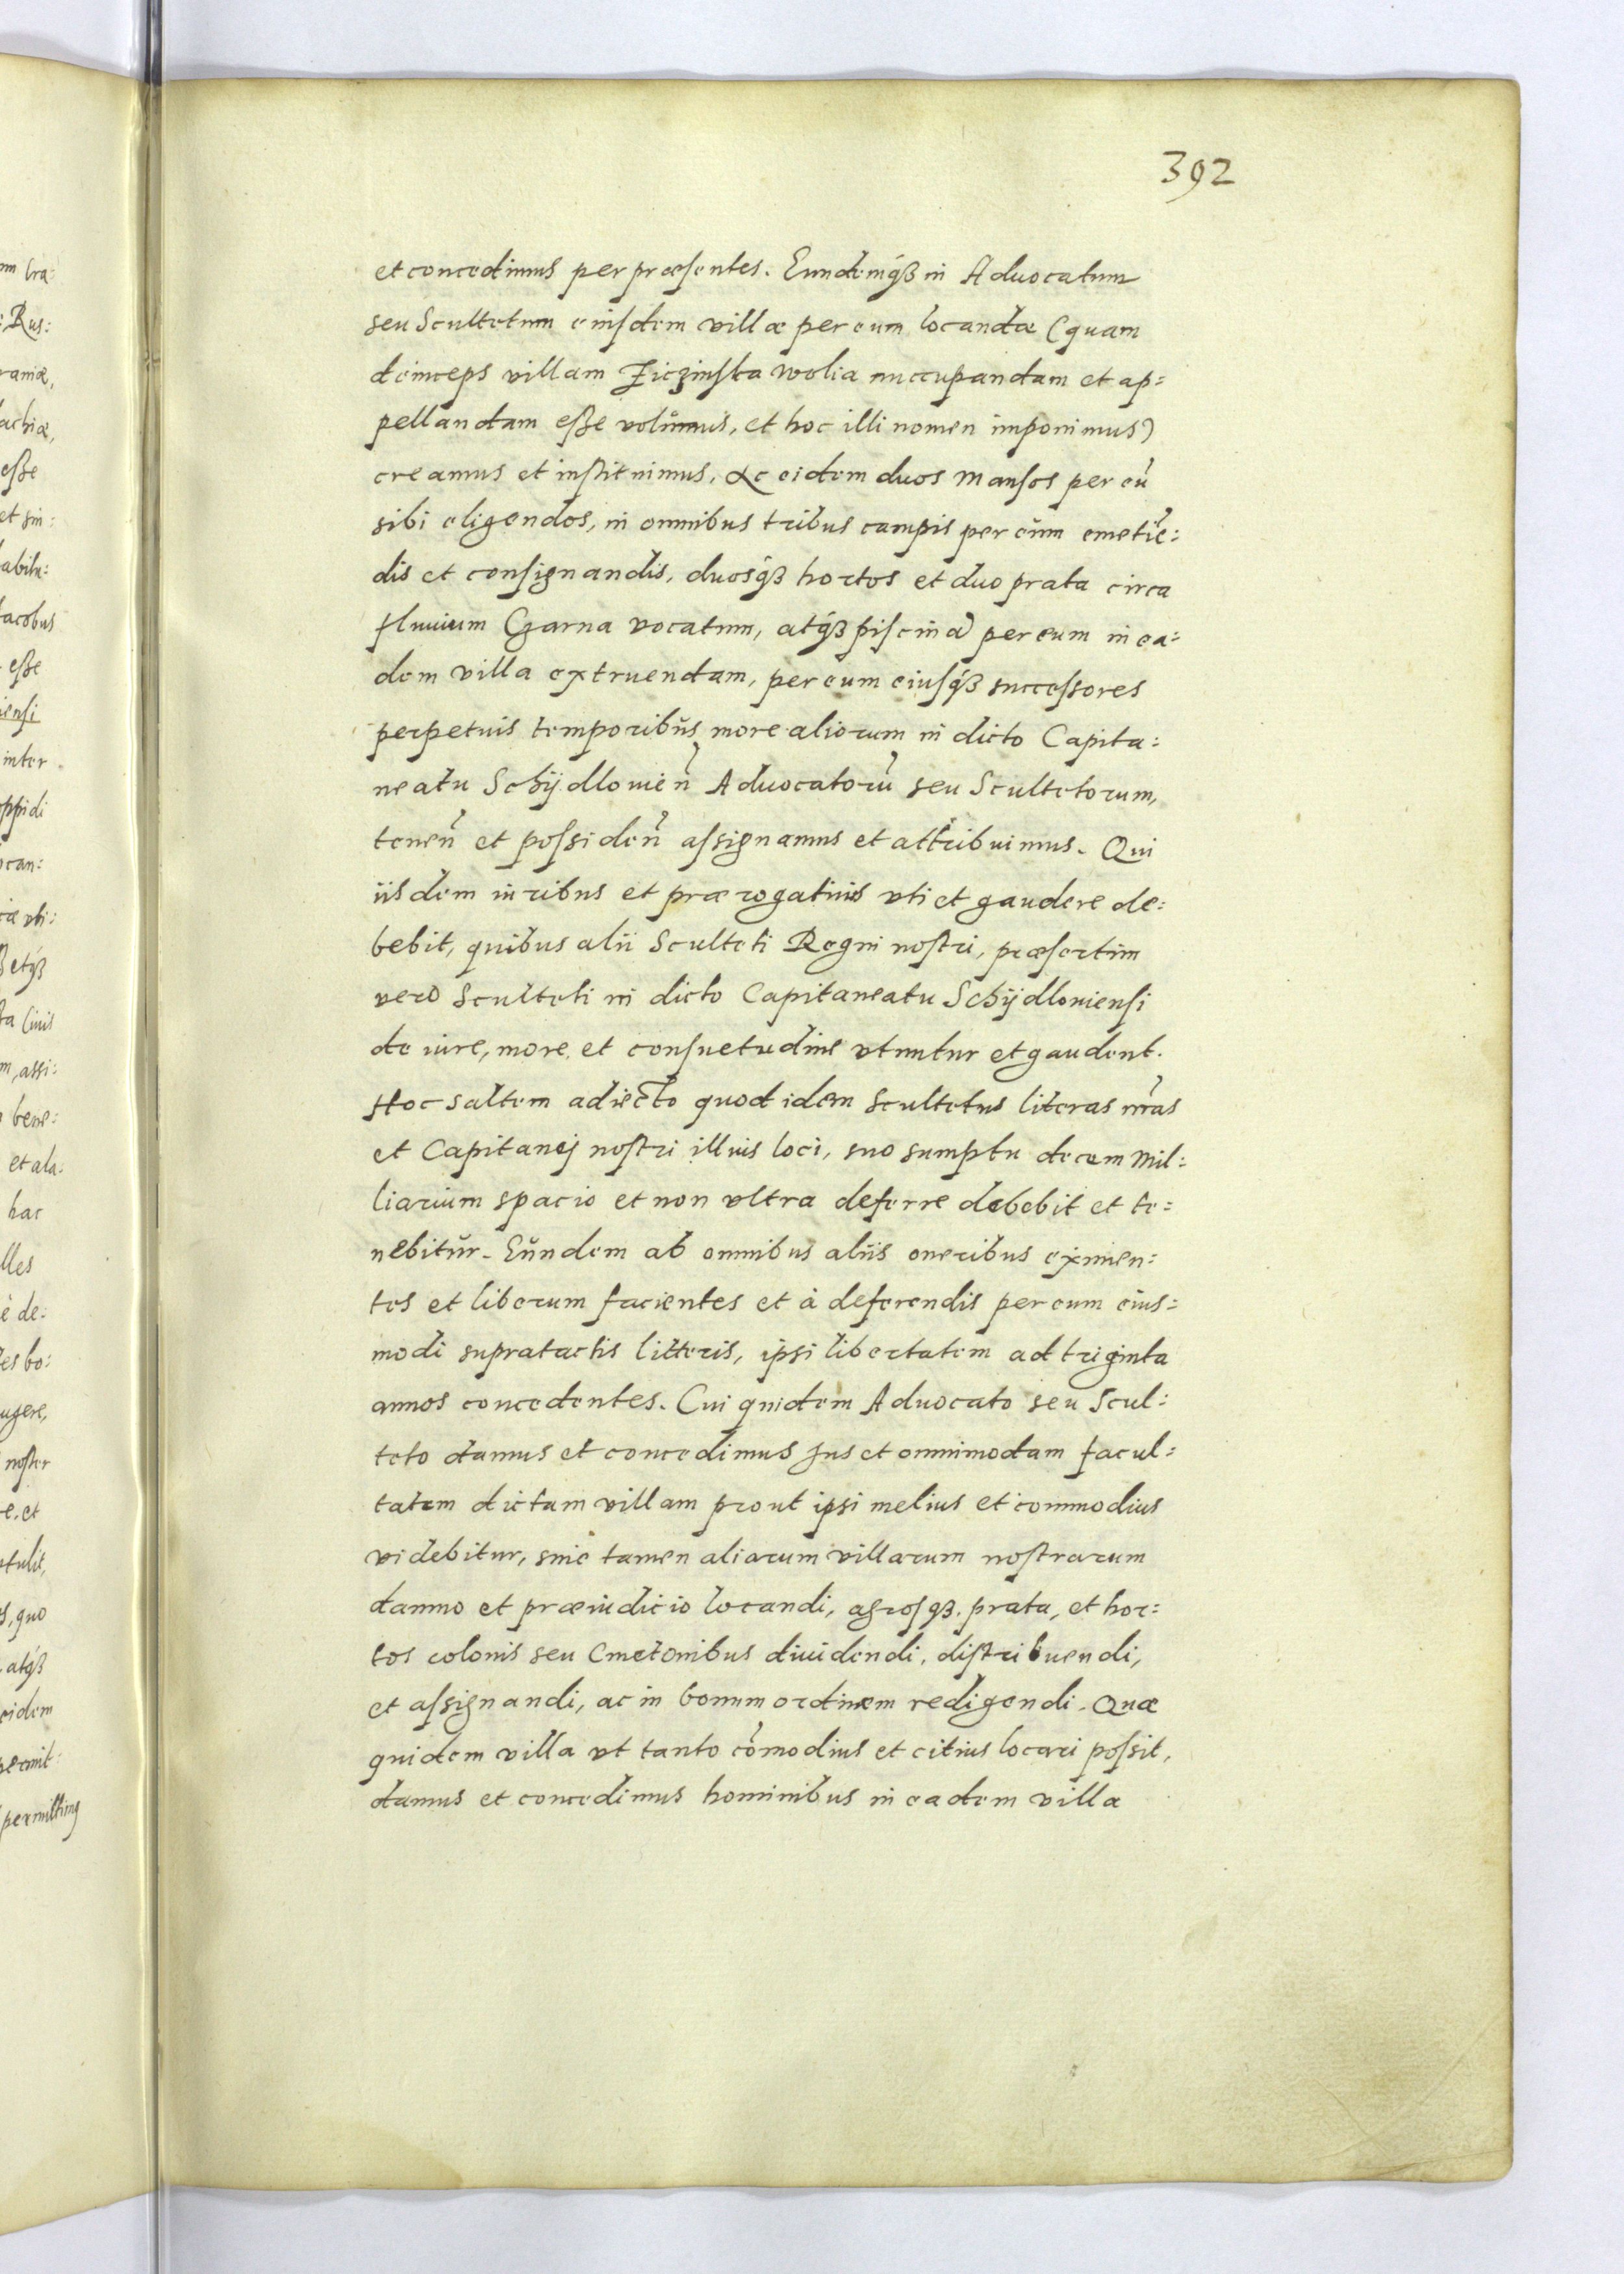 392
et concedimus per præsentes. Eundemq́ꝫ in Aduocatum
seu Scultetum eiusdem villæ per eum locandæ (quam
deinceps villam Ficzinska wolia nuccupandam et ap=
pellandam esse volŭmus, et hoc illi nomen imponimus)
creamus et instituimus, Ac eidem duos Mansos per eũ
sibi eligendos, in omnibus tribus campis per eŭm emetiẽ=
dis et consignandis, duosq́ꝫ hortos et duo prata circa
fluuium Czarna vocatum, atq́ꝫ piscinã per eum in ea=
dem villa extruendam, per eum eiusq́ꝫ successores
perpetuis temporibŭs more aliorum in dicto Capita=
neatu Schijdlouień Aduocatorũ seu Scultetorum,
teneñ et possideñ assignamus et attribuimus. Qui
iisdem iuribus et prærogatiuis vti et gaudere de=
bebit, quibus alii Sculteti Regni nostri, præsertim
vero Sculteti in dicto Capitaneatu Schijdlouiensi
de iure, more et consuetudine vtuntur et gaudent.
Hoc saltem adiecto quod idem Scultetus literas nr̃as
et Capitanej nostri illius loci, suo sumptu decem Mil=
liarium spacio et non vltra deferre debebit et te=
nebitŭr. Eŭndem ab omnibus aliis oneribus eximen=
tes et liberum facientes et à deferendis per eum eius=
modi supratactis litteris, ipsi libertatem ad triginta
annos concedentes. Cui quidem Aduocato seu Scul=
teto damus et concedimus Jus et omnimodam facul=
tatem dictam villam prout ipsi melius et commodius
videbitur, sine tamen aliarum villarum nostrarum
damno et præiudicio locandi, agrosqꝫ. prata, et hor=
tos colonis seu Cmetonibus diuidendi, distribuendi,
et assignandi, ac in bonum ordinem redigendi. Quæ
quidem villa vt tanto cõmodius et citius locari possit,
damus et concedimus hominibus in eadem villa